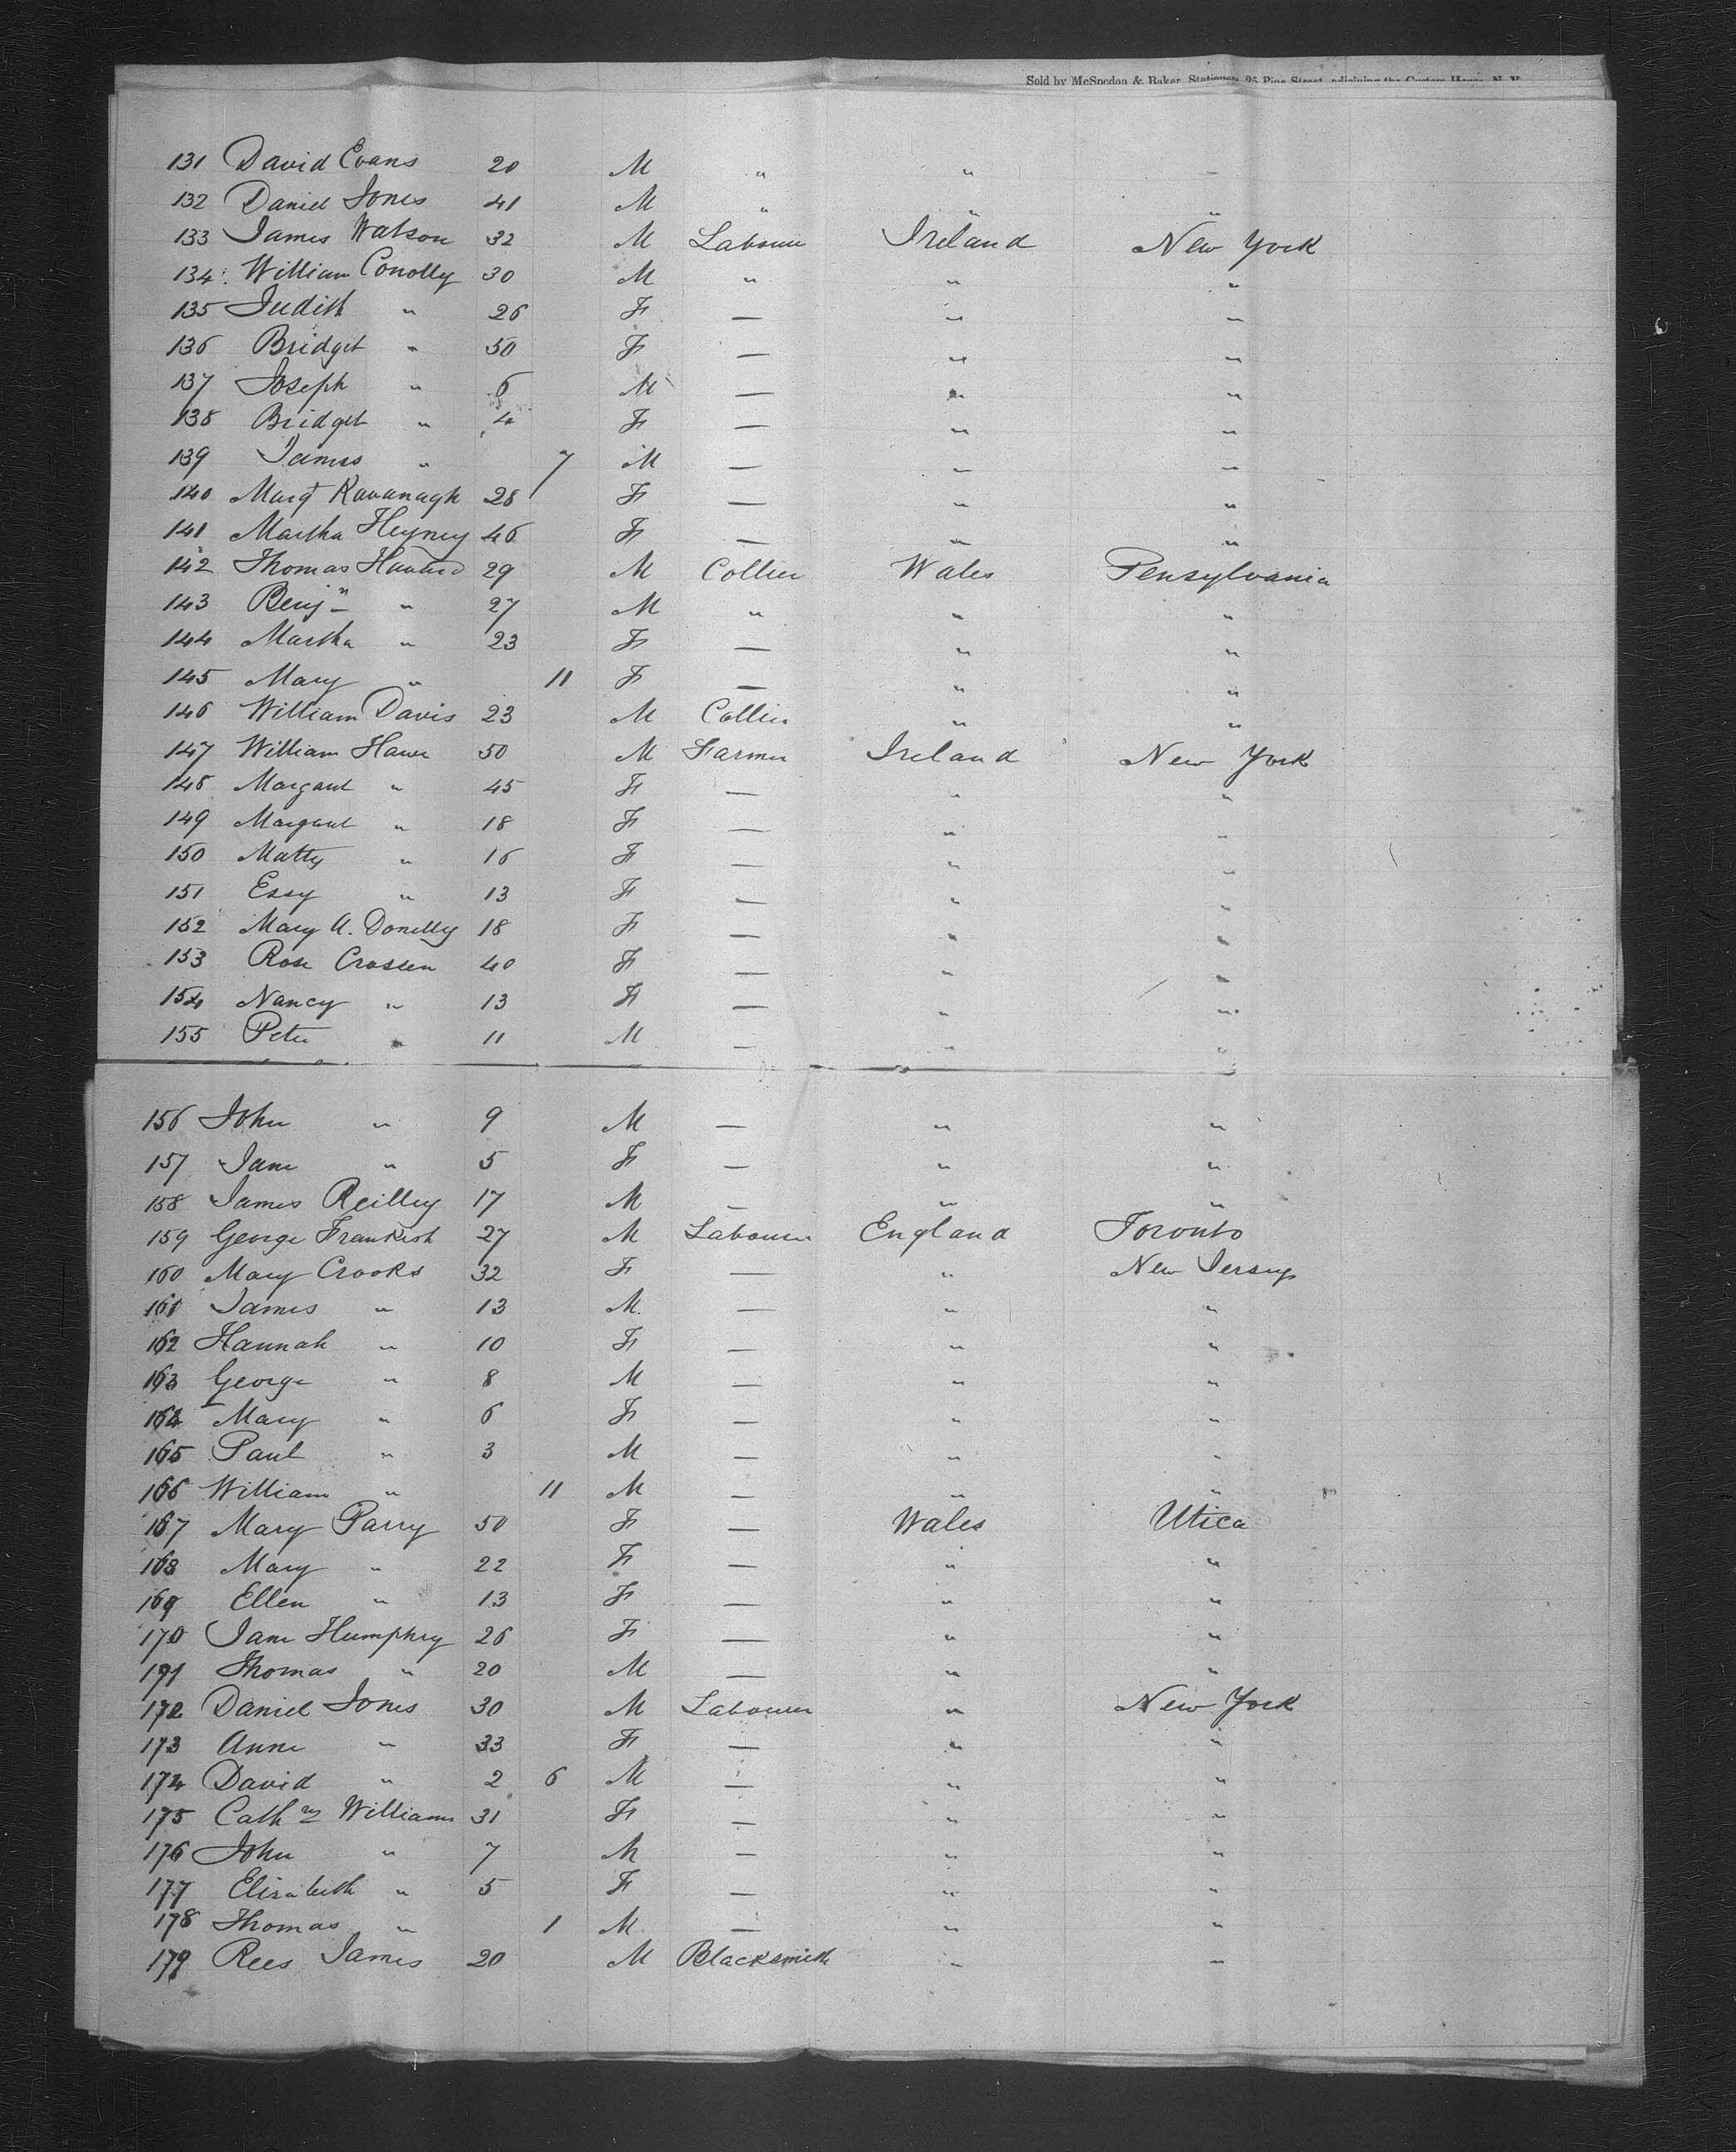 Sold by McSpedon & Baker, Stationers 25 Pine Street, adjoining the Custom House, N. Y.
131 David Evans 20 M " " "
132 Daniel Jones 41 M " " "
133 James Watson 32 M Labourer Ireland New York
134 William Conolly 30 M " " "
135 Judith " 26 F — " "
136 Bridget " 50 F — " "
137 Joseph " 6 M — " "
138 Bridget " 4 F — " "
139 James " 7 M — " "
140 Margt Kavanagh 28 F — " "
141 Martha Heyney 46 F — " "
142 Thomas 29 M Collier Wales Pensylvania
143 Benjn " 27 M " " "
144 Martha " 23 F — " "
145 Mary " 11 F — " "
146 William Davis 23 M Collier " "
147 William Hawe 50 M Farmer Ireland New York
148 Margaret " 45 F — " "
149 Margaret " 18 F — " "
150 Matty " 16 F — " "
151 Essy " 13 F — " "
152 Mary A. Donelly 18 F — " "
153 Rose Crossen 40 F — " "
154 Nancy " 13 F — " "
155 Peter " 11 M — " "
156 John " 9 M — " "
157 Jane " 5 F — " "
158 James Reilley 17 M — " "
159 George Frankish 27 M Labourer England Toronto
160 Mary Crooks 32 F — " New Jersey
161 James " 13 M — " "
162 Hannah " 10 F — " "
163 George " 8 M — " "
164 Mary " 6 F — " "
165 Paul " 3 M — " "
166 William " 11 M — " "
167 Mary Parry 50 F — Wales Utica
168 Mary " 22 F — " "
169 Ellen " 13 F — " "
170 Jane Humphry 26 F — " "
171 Thomas " 20 M — " "
172 Daniel Jones 30 M Labourer " New York
173 Anne " 33 F — " "
174 David " 2 6 M — " "
175 Cathne Williams 31 F — " "
176 John " 7 M — " "
177 Elizabeth " 5 F — " "
178 Thomas " 1 M — " "
179 Rees James 20 M Blacksmith " "